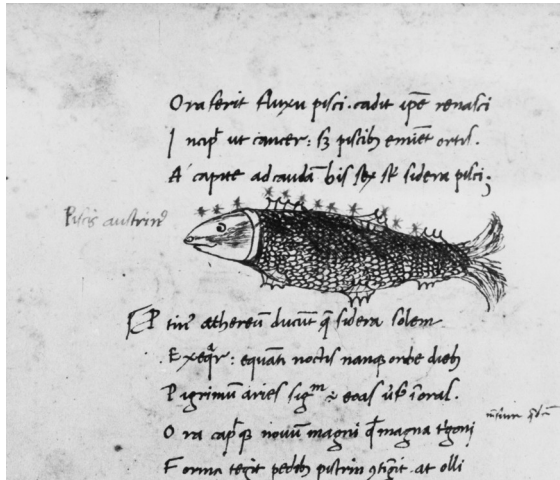 Ora ferit fluxu pisci. cadit ipe renasci
Incipt ut cancer: sz piscibz emiet ortus.
A capite ad caudam bis sex st sidera pisci;
Piscis austrin9
tin9 æthereum ducunt q sidera solem
Exeqr: equati noctis nanqz orbe diebz
Pigrimum aries sigm eoas
Ora capt qz nouum magni qd magna
Forma tegit pedebz pistrin 9tigit. at olli